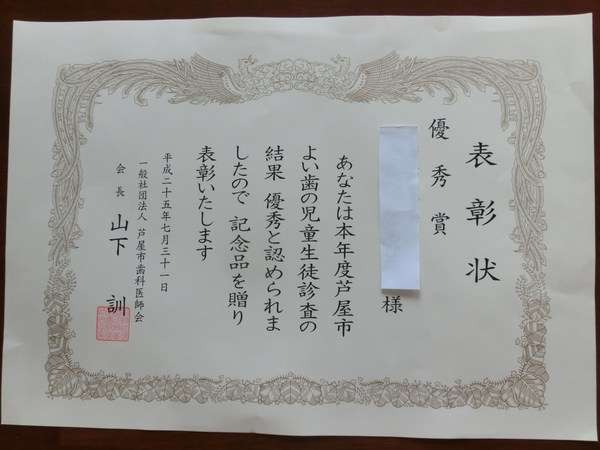 表彰状
優秀賞
様
あなたは本年度芦屋市
よい歯の児童生徒診査の
結果 優秀と認められま
したので 記念品を贈り
表彰いたします
平成二十五年七月三十一日
一般社団法人 芦屋市歯科医師会
会長 山下 訓